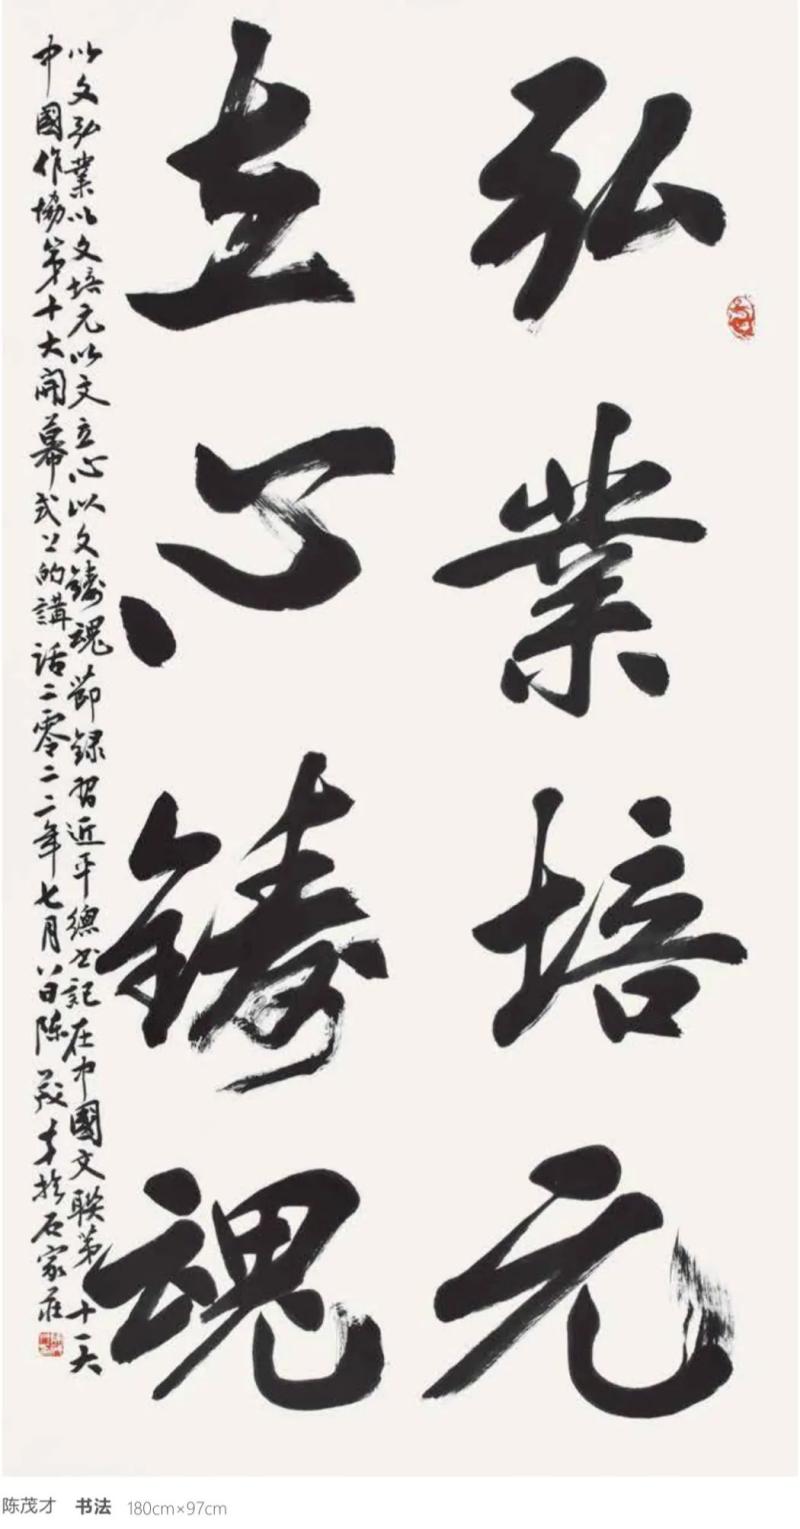 弘業培元
立心鑄魂
以文弘業以文培元以文立心以文鑄魂節録習近平總书記在中國文聯第十一大
中國作協第十大開幕式上的講話二零二二年七月八日陈茂才於石家莊
陈茂才 书法 180cm×97cm